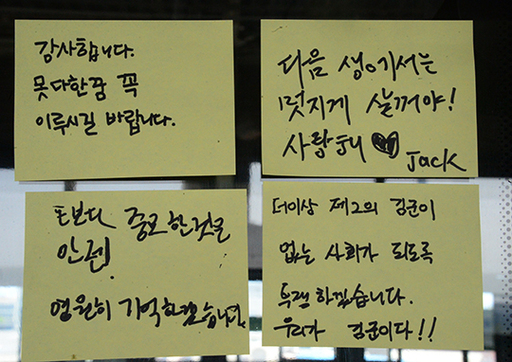 감사합니다.
못다한꿈 꼭
이루시길 바랍니다.
다음 생에서는
멋지게 살꺼야!
사랑해 ♥
Jack
돈보다 중요한것은
안전!
영원히 기억하겠습니다.
더이상 제2의 김군이
없는 사회가 되도록
투쟁하겠습니다.
우리가 김군이다!!